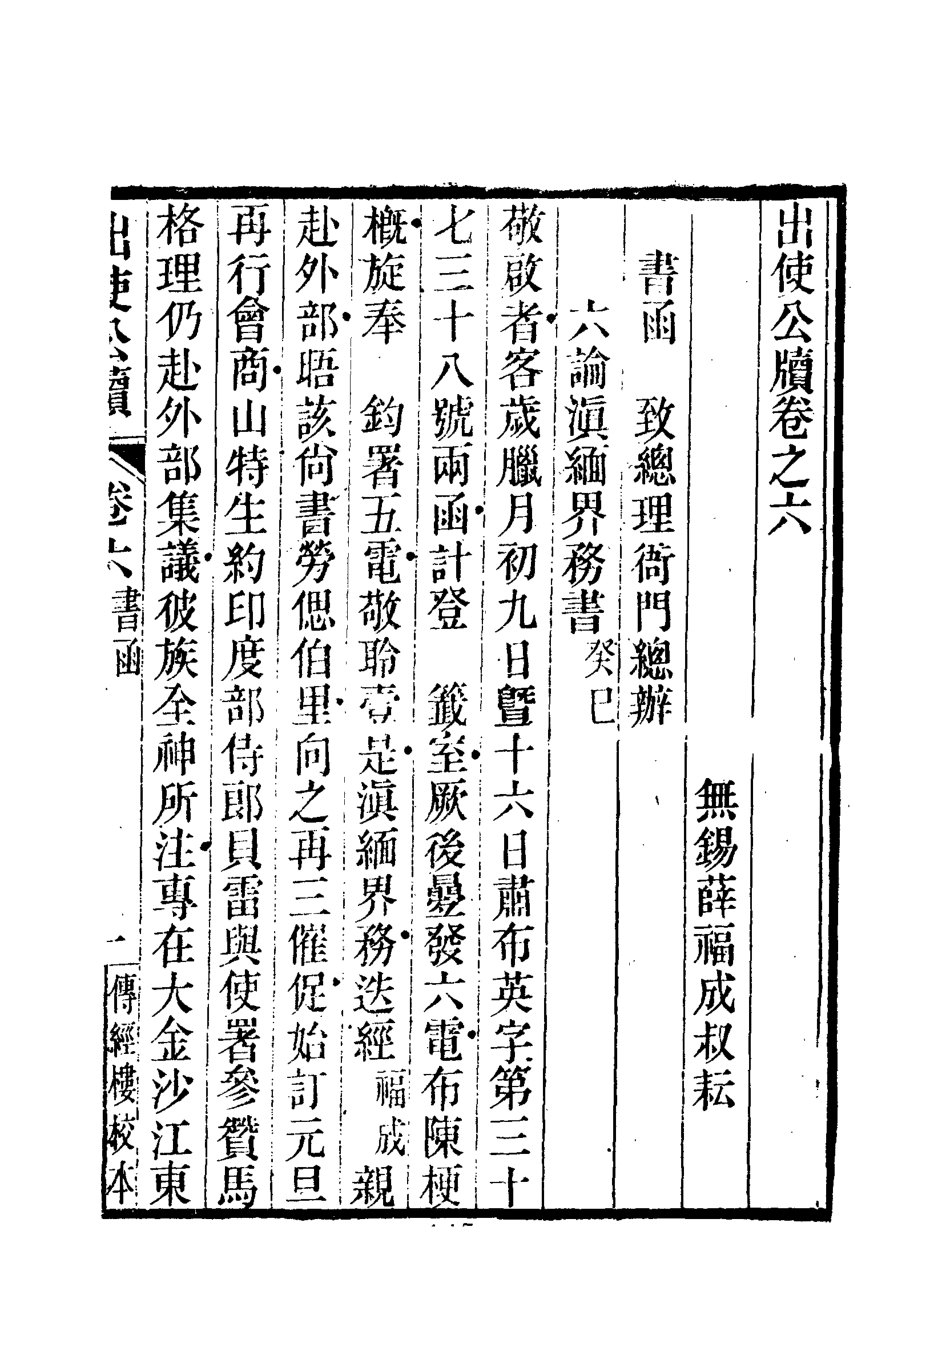 出使公牘卷之六
無錫薛福成叔耘
書函　致總理衙門總辦
六論滇緬界務書 癸巳
敬啟者客歲臘月初九日曁十六日肅布英字第三十
七三十八號兩函計登　籤室厥後疊發六電布陳梗
槪旋奉　鈞署五電敬聆壹是滇緬界務迭經福成親
赴外部晤該尙書勞偲伯里向之再三催促始訂元旦
再行會商山特生約印度部侍郞貝雷與使署參贊馬
格理仍赴外部集議彼族全神所注專在大金沙江東
出使公牘　卷六　書函　一　傳經樓校本